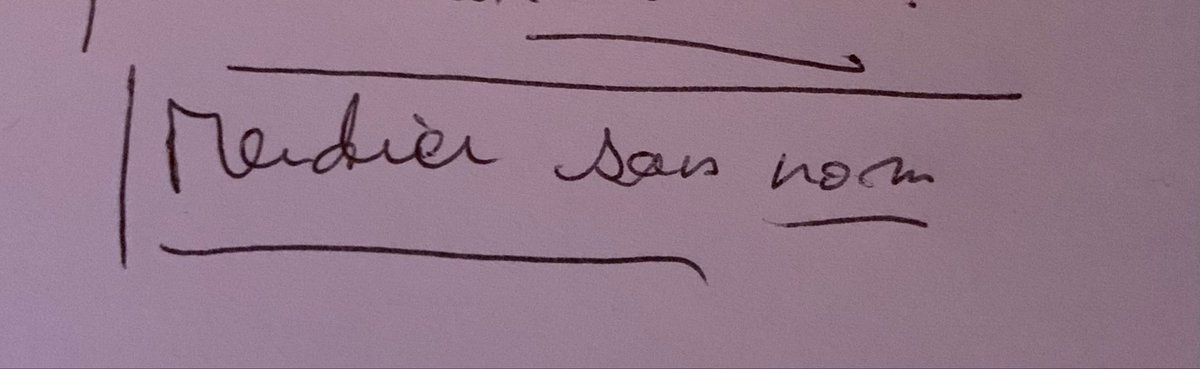 Mendier sans nom